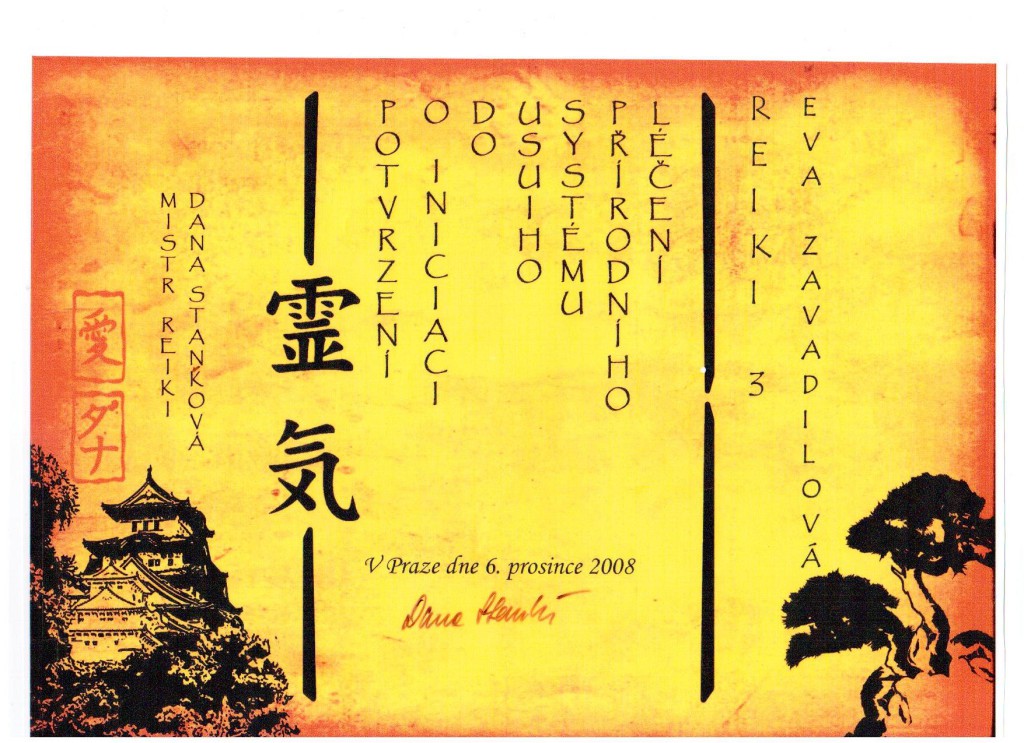 愛
ダナ
MISTR REIKI
DANA STANKOVÁ
霊気
POTVRZENÍ
O INICIACI
DO
USUIHO
SYSTÉMU
PŘÍRODNÍHO
LÉČENÍ
REIKI 3
EVA ZAVADILOVÁ
V Praze dne 6. prosince 2008
Dana